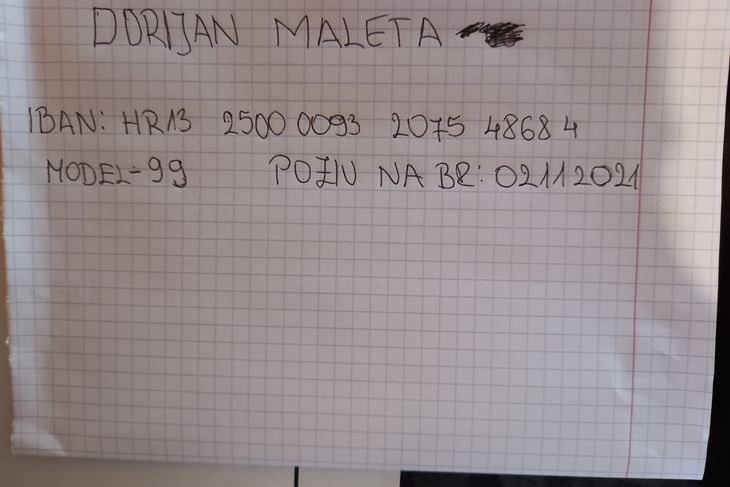 DORIJAN MALETA
IBAN: HR13 2500 0093 2075 4868 4
MODEL-99 POZIV NA BR: 02112021